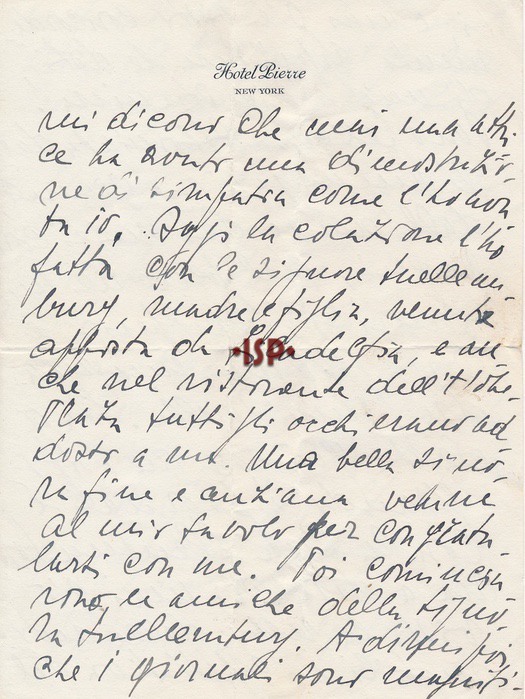 Hotel Pierre
NEW YORK
mi dicono che mai una attri-
ce ha avuto una dimostrazio-
ne di simpatia come l'ho avu
ta io. Oggi la colazione l'ho
fatta con le signore
bury, madre e figlia, venute
apposta da ISP e an
che nel ristorante dell'Hotel
Plaza tutti gli occhi erano ad
dosso a me. Una bella signo-
ra fine e anziana venne
al mio tavolo per congratu
larsi con me. Poi comincia
rono le amiche della signo-
ra
che i giornali sono magnifi-